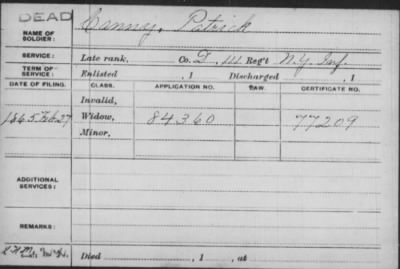 DEAD
NAME OF SOLDIER: Canny, Patrick
SERVICE: Late rank, Co. D, 111 Reg't N.Y. Inf.
TERM OF SERVICE: Enlisted , 1 Discharged , 1
DATE OF FILING. CLASS. APPLICATION NO. LAW. CERTIFICATE NO.
Invalid,
1865 Feb 27 Widow, 84360 77209
Minor,
ADDITIONAL SERVICES:
REMARKS:
Died , 1 , at